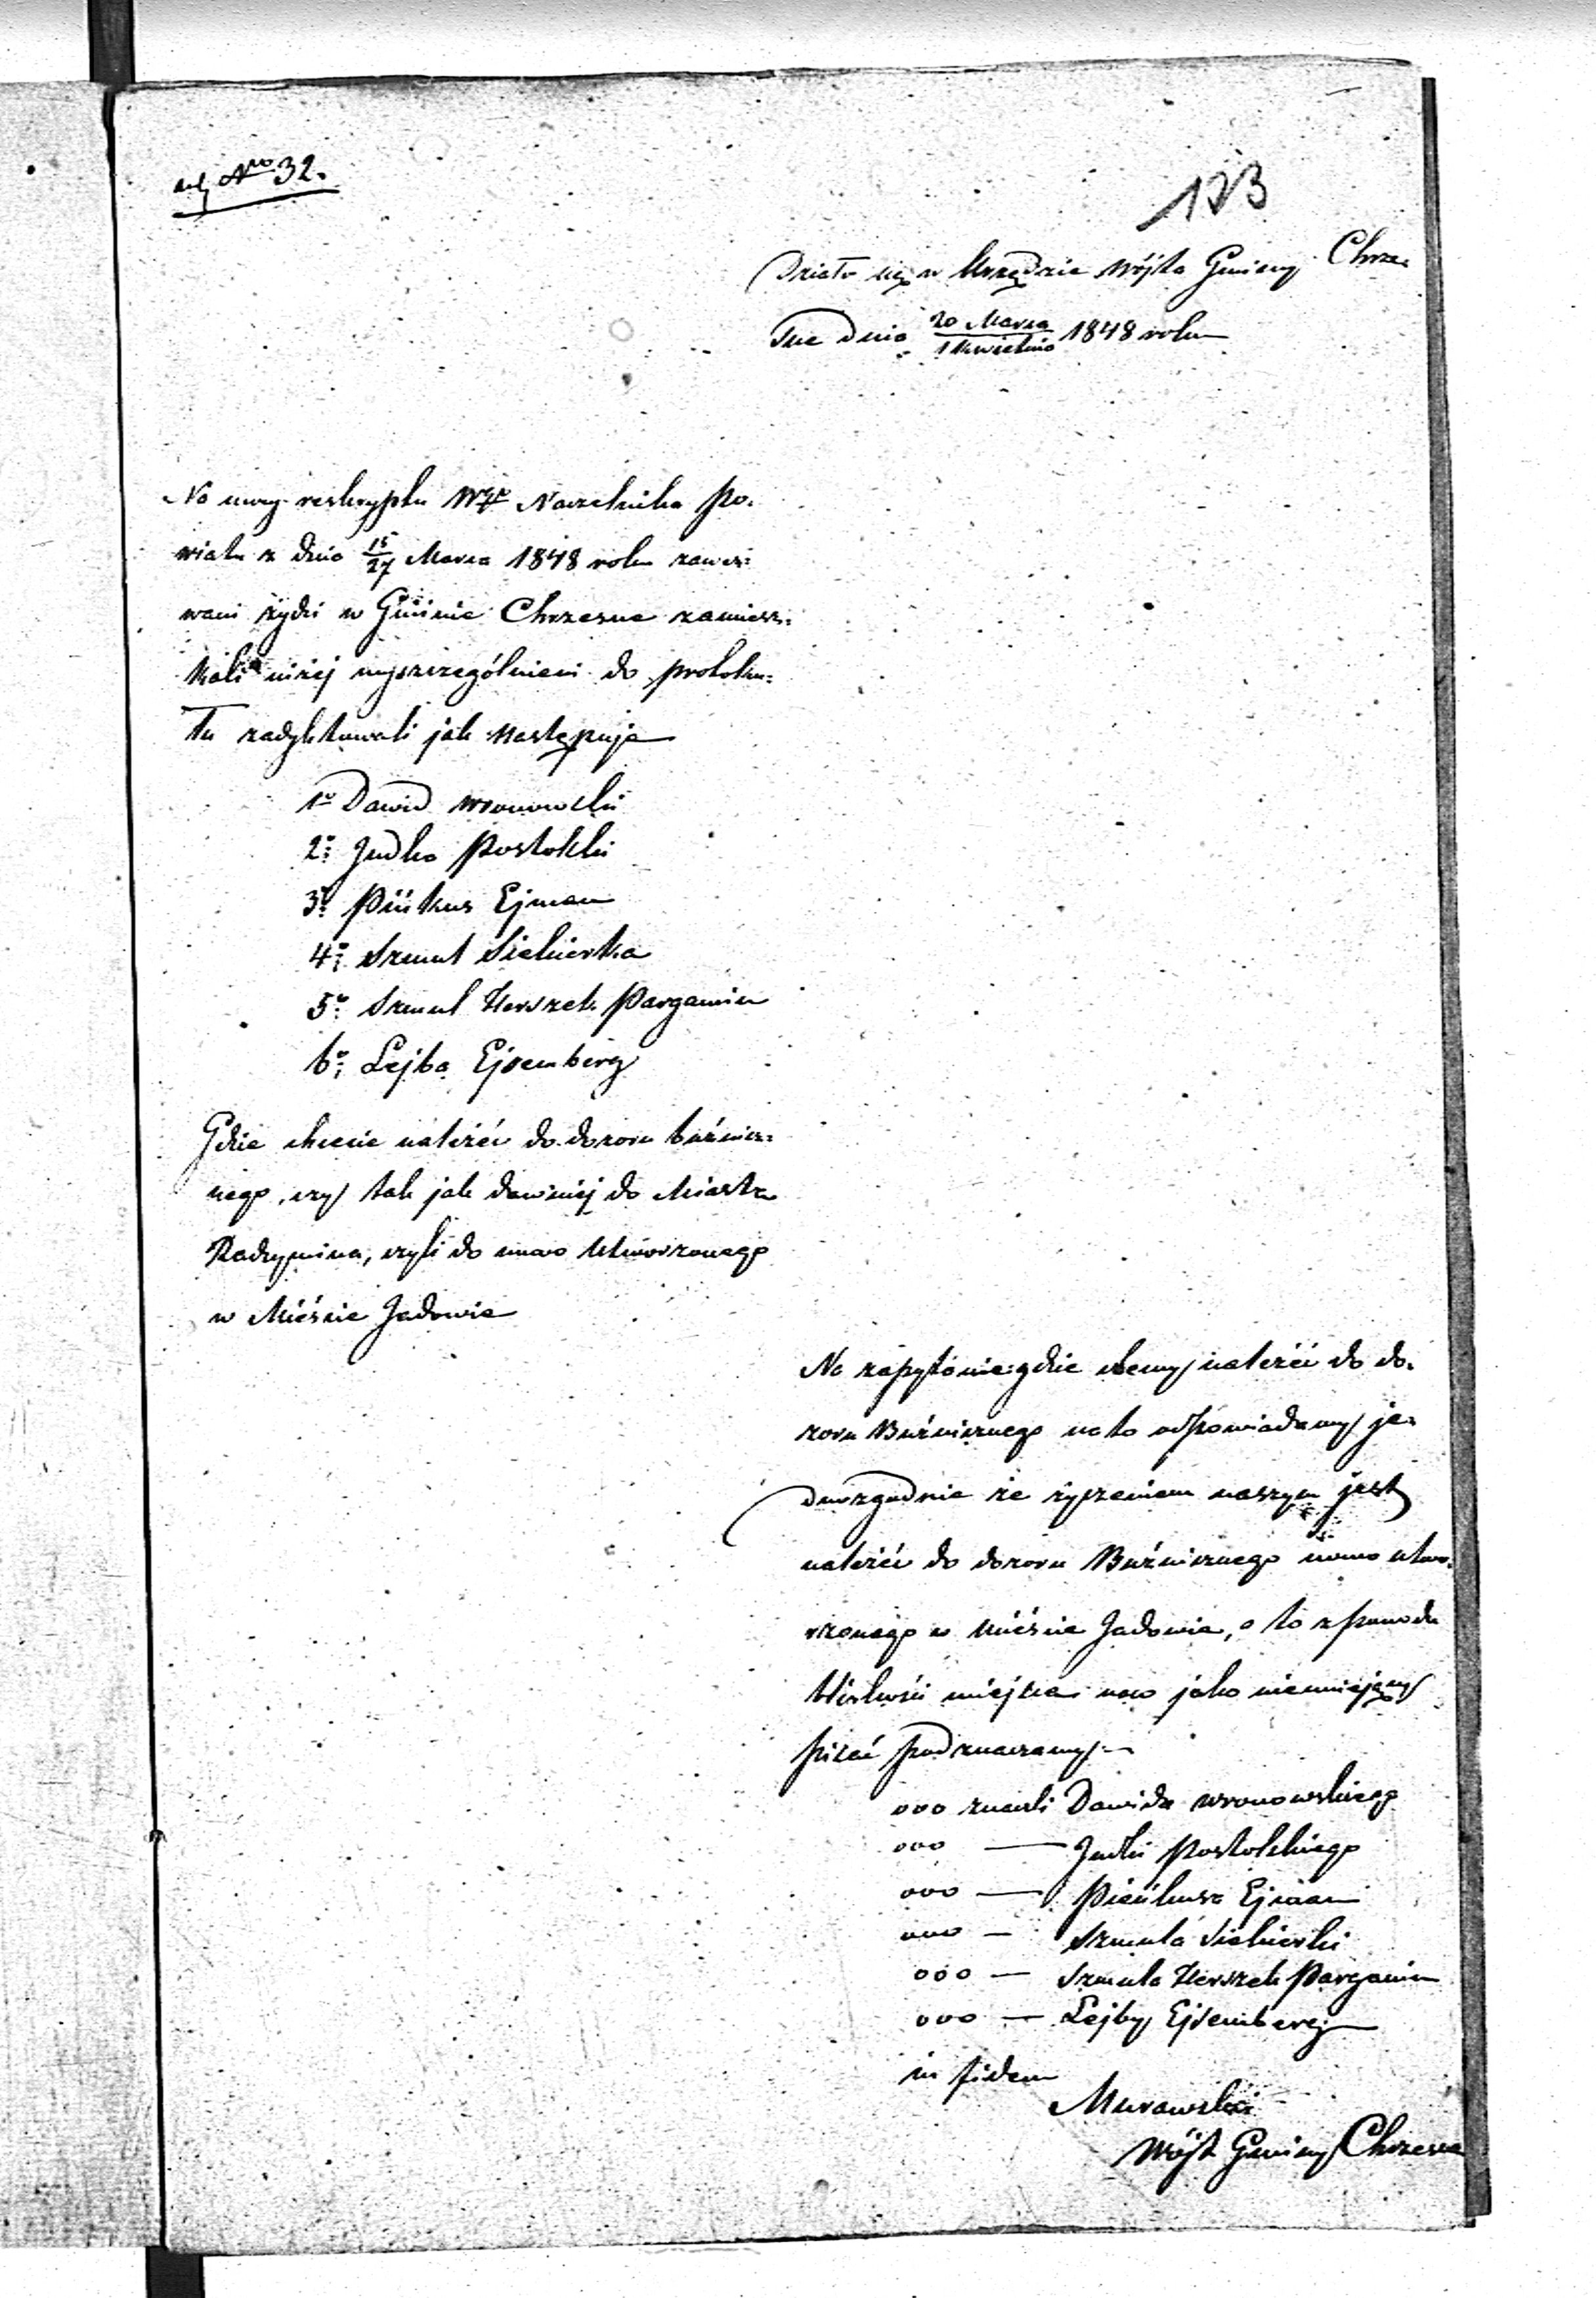 ad Nro 32.
123
Działo się w Urzędzie Wójta Gminy Chrzę-
sne dnia 20 Marca / 1 Kwietnia 1848 roku
Na mocy reskryptu Wgo Naczelnika Po-
wiatu z dnia 15/27 Marca 1848 roku zawez-
wani żydzi w Gminie Chrzesne zamiesz-
kali niżej wyszczególnieni do protoku-
łu zadyktowali jak następuje
1o Dawid Wronowski
2o Judka Postolski
3o Pinkus Ejman
4o Szmul Sielnierka
5o Szmul Herszek Pargamin
6o Lejba Ejsemberg
Gdzie chcecie należeć do dozoru bużnicz-
nego, czy tak jak dawniej do Miasta
Radzymina, czyli do nowo utworzonego
w Mieście Jadowie
Na zapytanie gdzie chcemy należeć do do-
zoru Bużnicznego na to odpowiadamy je-
dnozgodnie że życzeniem naszym jest
należeć do dozoru Bużnicznego nowo utwo-
rzonego w mieście Jadowie, a to z powodu
bliskości miejsca jako nieumiejący
pisać podznaczamy.
ooo znaki Dawida Wronowskiego
ooo — Judki Postolskiego
ooo — Pinkusa Ejman
ooo — Szmula Sielnierki
ooo — Szmula Herszek Pargamin
ooo — Lejby Ejsemberg
in fidem
Murawski
Wójt Gminy Chrzesne